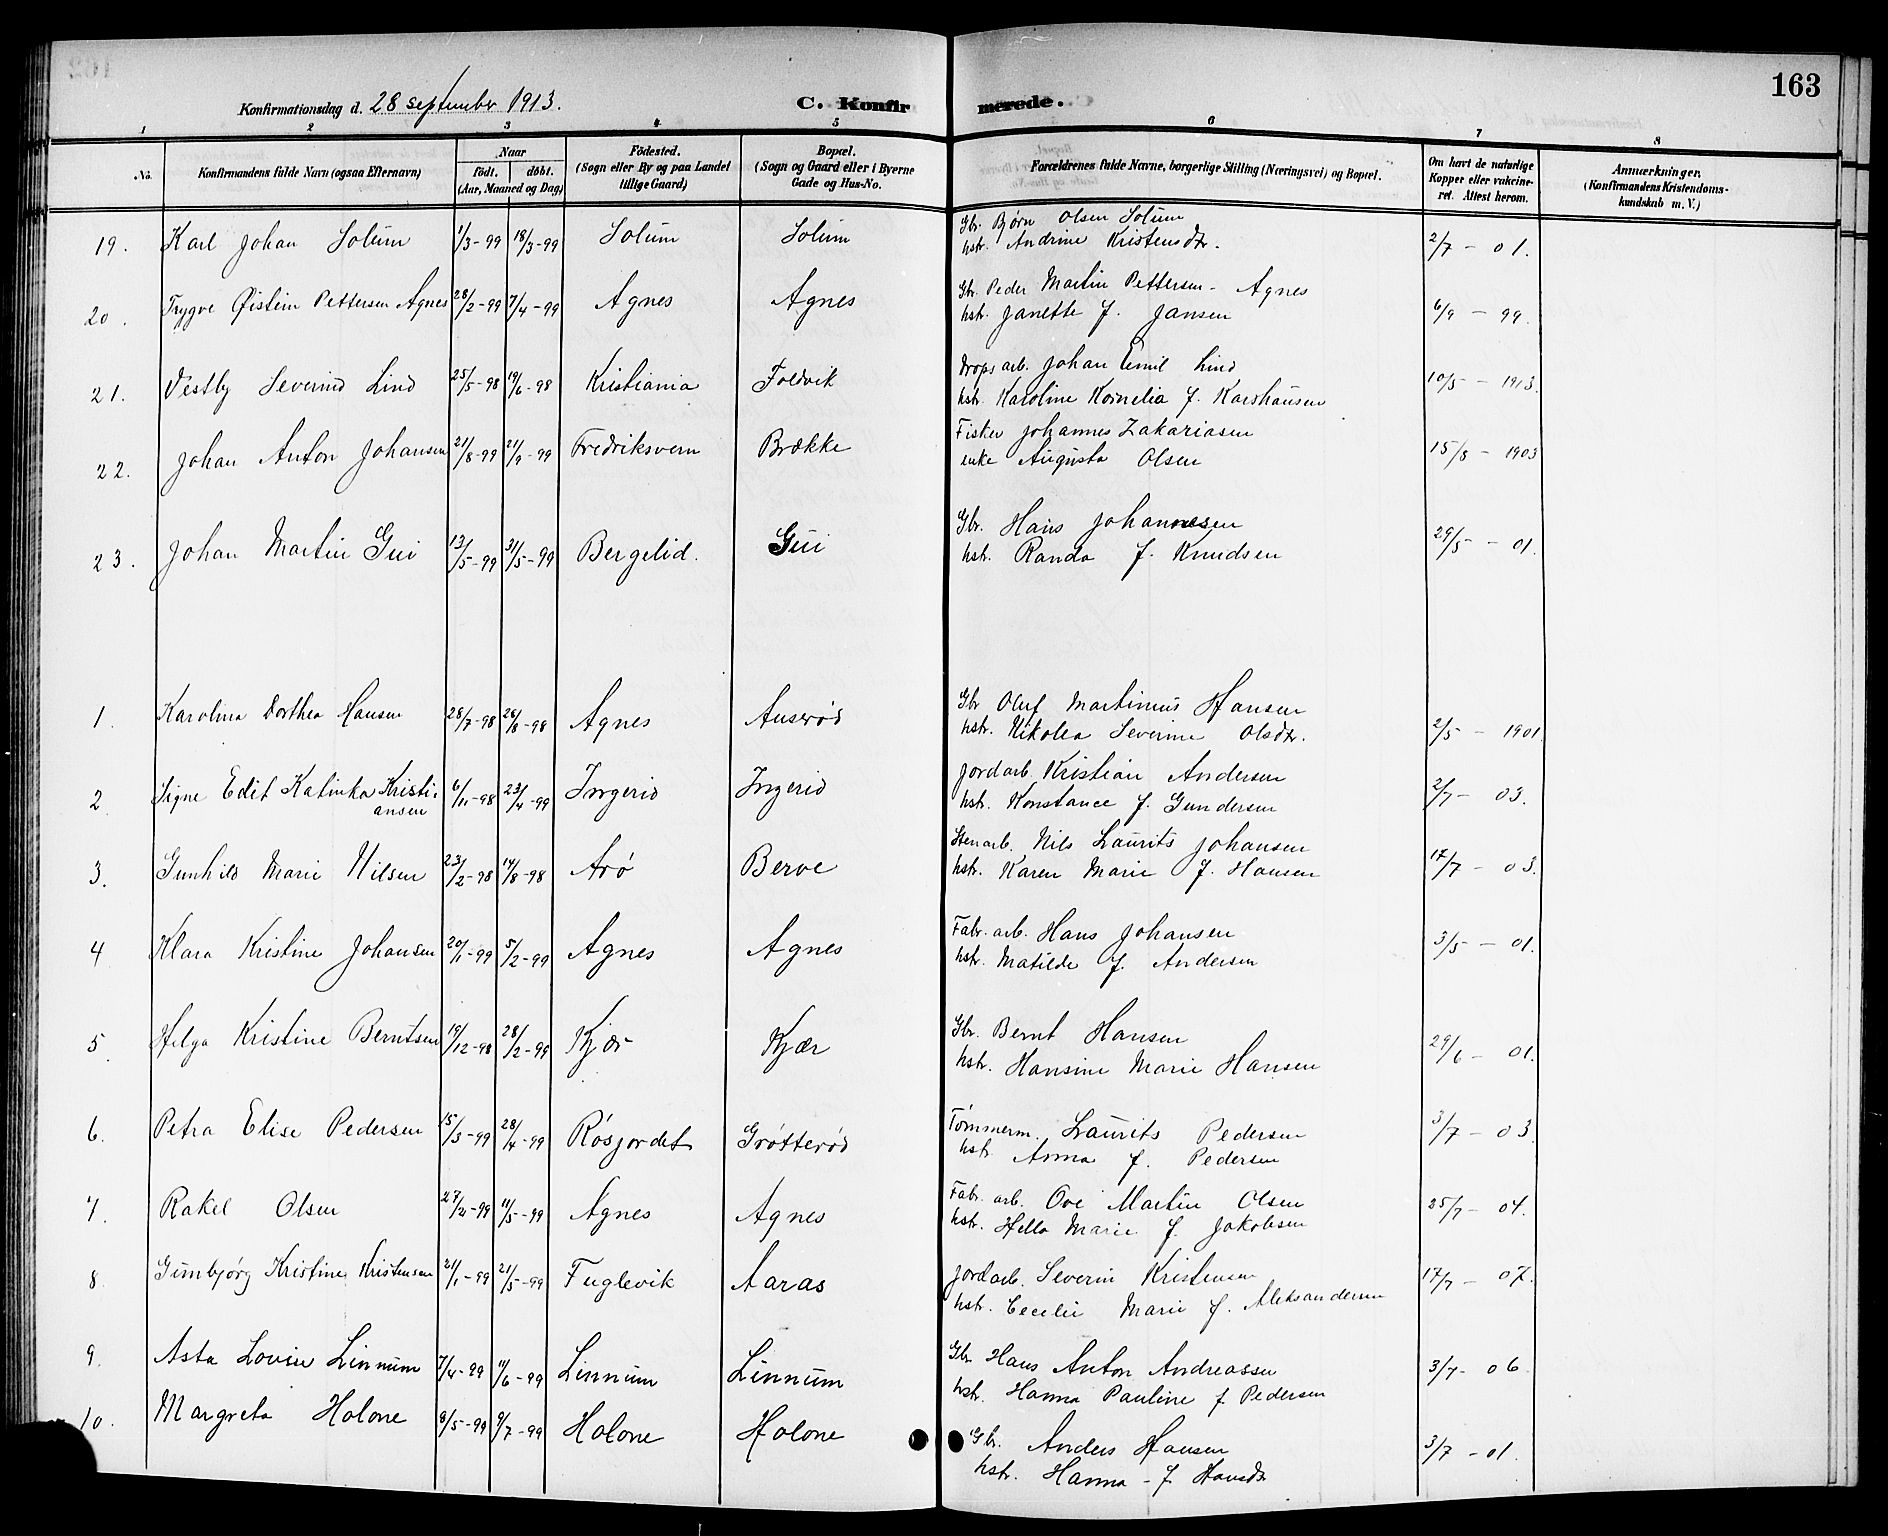 163
Konfirmationsdag d. 28 september 1913.
C. Konfir merede.
1 2 3 4 5 6 7 8
No. Konfirmandens fulde Navn (ogsaa Efternavn) Naar födt. döbt. (Aar, Maaned og Dag) Födested. (Sogn eller By og paa Landet tillige Gaard) Bopæl. (Sogn og Gaard eller i Byerne Gade og Hus-No. Forældrenes fulde Navne, borgerlige Stilling (Næringsvei) og Bopæl. Om havt de naturlige Kopper eller vakcineret. Attest herom. Anmærkninger. (Konfirmandens Kristendomskundskab m. V.)
19. Karl Johan Solum 1/3-99 18/3-99 Solum Solum Gbr. Bjørn Olsen Solum 2/7 - 01.
hstr. Andrine Kristensdtr.
20. Trygve Øistein Pettersen Agnes 28/2-99 7/4-99 Agnes Agnes Gbr. Peder Martin Pettersen - Agnes 6/9 - 99.
hstr. Janette f. Jansen
21. Vestby Severind Lind 25/5-98 19/6-98 Kristiania Foldvik Drops arb. Johan Emil Lind 10/5 - 1913.
hstr. Karoline Kornelia f. Karshausen
22. Johan Anton Johansen 21/8-99 21/9-99 Fredriksvern Brække Fisker Johannes Zakariasen 15/8 - 1903
enke Augusta Olsen
23. Johan Martin Gui 13/5-99 31/5-99 Bergelid. Gui Gbr. Hans Johannesen 29/5 - 01.
hstr. Randa f. Knudsen
1. Karolina Dorthea Hansen 28/7-98 26/8-98 Agnes Auserød Gbr Oluf Martinius Hansen 2/5 - 1901.
hstr. Nikolea Severine Olsdtr.
2 Signe Edit Katinka Kristiansen 6/11-98 23/4-99 Ingerid Ingerid Jordarb. Kristian Andersen 2/7 - 03.
hstr. Konstance f. Gundersen
3. Gunhild Marie Nilsen 23/2-98 14/8-98 Arø Berve Stenarb. Nils Laurits Johansen 17/7 - 03.
hstr. Karen Marie f. Hansen
4 Klara Kristine Johansen 20/1-99 5/2-99 Agnes Agnes Fabr. arb. Hans Johansen 3/5 - 01.
hstr. Matilde f. Andersen
5. Helga Kristine Berntsen 19/12-98 28/2-99 Kjær Kjær Gbr. Bernt Hansen 29/6 - 01.
hstr. Hansine Marie Hansen
6. Petra Elise Pedersen 15/3-99 28/4-99 Røsjordet Grøtterød Tømmerm. Laurits Pedersen 3/7 - 03.
hstr. Anna f. Pedersen
7. Rakel Olsen 27/2-99 11/5-99 Agnes Agnes Fabr. arb. Ove Martin Olsen 25/7 - 04.
hstr. Hella Marie f. Jakobsen
8. Gunbjørg Kristine Kristensen 21/1-99 21/5-99 Fuglevik Aaras Jordarb. Severin Kristensen 17/7 - 07.
hstr. Cecelie Marie f. Aleksandersen
9. Asta Lovise Linnum 7/4-99 11/6-99 Linnum Linnum Gbr. Hans Anton Andreassen 3/7 - 06.
hstr. Hanna Pauline f. Pedersen
10. Margreta Holone 9/5-99 9/7-99 Holone Holone Gbr. Anders Hansen 3/7 - 01.
hstr. Hanna - f. Hansdtr